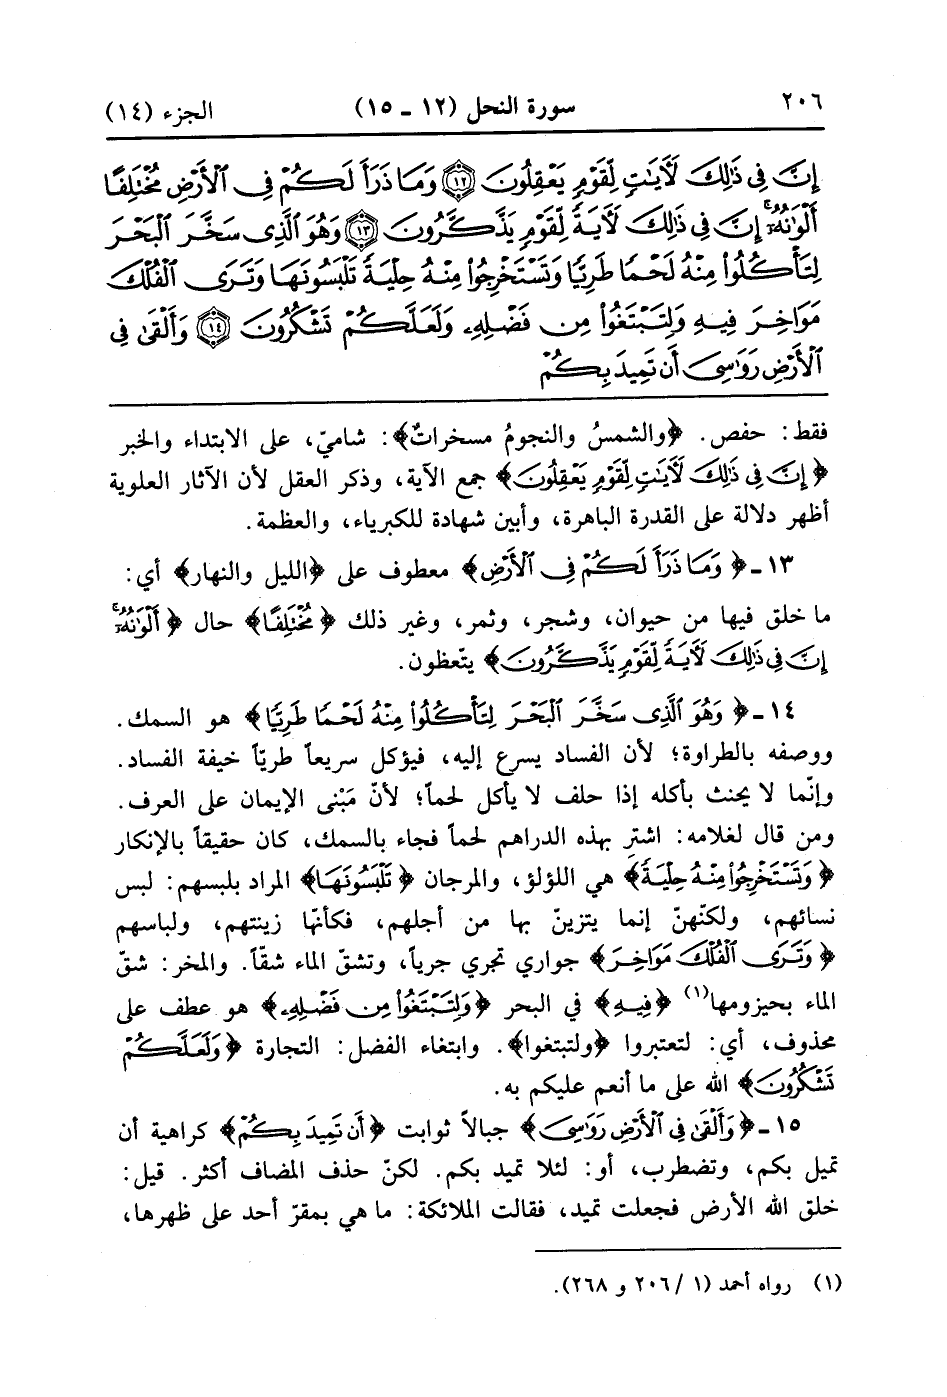 ٢٠٦ سورة النحل (١٢ ـ ١٥) الجزء (١٤)
إِنَّ فِي ذَٰلِكَ لَآيَاتٍ لِّقَوْمٍ يَعْقِلُونَ ١٢ وَمَا ذَرَأَ لَكُمْ فِي الْأَرْضِ مُخْتَلِفًا
أَلْوَانُهُۥٓ إِنَّ فِي ذَٰلِكَ لَآيَةً لِّقَوْمٍ يَذَّكَّرُونَ ١٣ وَهُوَ الَّذِي سَخَّرَ الْبَحْرَ
لِتَأْكُلُوا۟ مِنْهُ لَحْمًا طَرِيًّا وَتَسْتَخْرِجُوا۟ مِنْهُ حِلْيَةً تَلْبَسُونَهَا وَتَرَى الْفُلْكَ
مَوَاخِرَ فِيهِ وَلِتَبْتَغُوا۟ مِن فَضْلِهِۦ وَلَعَلَّكُمْ تَشْكُرُونَ ١٤ وَأَلْقَىٰ فِي
الْأَرْضِ رَوَاسِيَ أَن تَمِيدَ بِكُمْ
فقط: حفص. ﴿والشمسُ والنجومُ مسخراتٌ﴾: شاميّ، على الابتداء والخبر
﴿إِنَّ فِي ذَٰلِكَ لَآيَاتٍ لِّقَوْمٍ يَعْقِلُونَ﴾ جمع الآية، وذكر العقل لأن الآثار العلوية
أظهر دلالة على القدرة الباهرة، وأبين شهادة للكبرياء، والعظمة.
١٣ ـ ﴿وَمَا ذَرَأَ لَكُمْ فِي الْأَرْضِ﴾ معطوف على ﴿الليل والنهار﴾ أي:
ما خلق فيها من حيوان، وشجر، وثمر، وغير ذلك ﴿مُخْتَلِفًا﴾ حال ﴿أَلْوَانُهُۥٓ
إِنَّ فِي ذَٰلِكَ لَآيَةً لِّقَوْمٍ يَذَّكَّرُونَ﴾ يتّعظون.
١٤ ـ ﴿وَهُوَ الَّذِي سَخَّرَ الْبَحْرَ لِتَأْكُلُوا۟ مِنْهُ لَحْمًا طَرِيًّا﴾ هو السمك.
ووصفه بالطراوة؛ لأن الفساد يسرع إليه، فيؤكل سريعاً طريّاً خيفة الفساد.
وإنّما لا يحنث بأكله إذا حلف لا يأكل لحماً؛ لأنّ مَبْنى الإيمان على العرف.
ومن قال لغلامه: اشترِ بهذه الدراهم لحماً فجاء بالسمك، كان حقيقاً بالإنكار
﴿وَتَسْتَخْرِجُوا۟ مِنْهُ حِلْيَةً﴾ هي اللؤلؤ، والمرجان ﴿تَلْبَسُونَهَا﴾ المراد بلبسهم: لبس
نسائهم، ولكنّهنّ إنما يتزينّ بها من أجلهم، فكأنّها زينتهم، ولباسهم
﴿وَتَرَى الْفُلْكَ مَوَاخِرَ﴾ جواري تجري جرياً، وتشقّ الماء شقّاً. والمخر: شقّ
الماء بحيزومها(١) ﴿فِيهِ﴾ في البحر ﴿وَلِتَبْتَغُوا۟ مِن فَضْلِهِۦ﴾ هو عطف على
محذوف، أي: لتعتبروا ﴿ولتبتغوا﴾. وابتغاء الفضل: التجارة ﴿وَلَعَلَّكُمْ
تَشْكُرُونَ﴾ الله على ما أنعم عليكم به.
١٥ ـ ﴿وَأَلْقَىٰ فِي الْأَرْضِ رَوَاسِيَ﴾ جبالاً ثوابت ﴿أَن تَمِيدَ بِكُمْ﴾ كراهية أن
تميل بكم، وتضطرب، أو: لئلا تميد بكم. لكنّ حذف المضاف أكثر. قيل:
خلق الله الأرض فجعلت تميد، فقالت الملائكة: ما هي بمقرّ أحد على ظهرها،
(١) رواه أحمد (١/ ٢٠٦ و ٢٦٨).